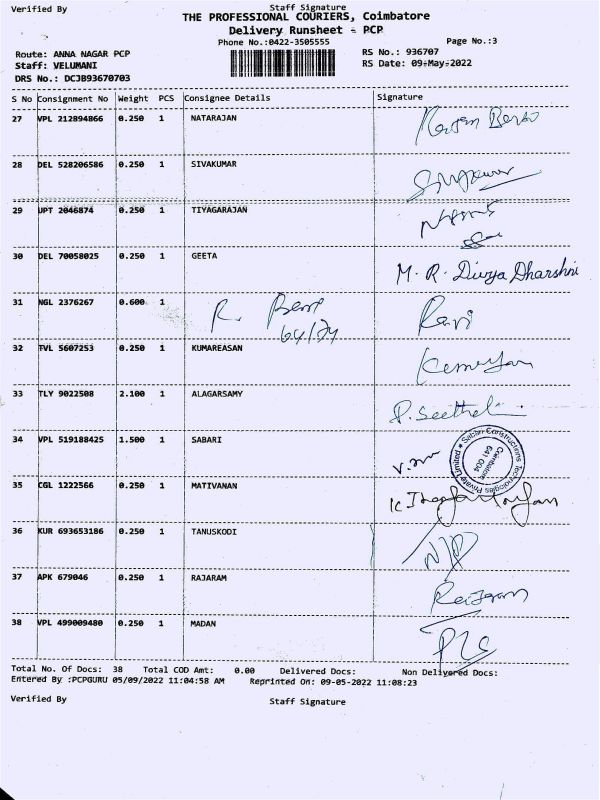 Verified By Staff Signature
THE PROFESSIONAL COURIERS, Coimbatore
Delivery Runsheet - PCP
Phone No.:0422-3505555 Page No.:3
Route: ANNA NAGAR PCP RS No.: 936707
Staff: VELUMANI RS Date: 09-May-2022
DRS No.: DCJB93670703
S No Consignment No Weight PCS Consignee Details Signature
27 VPL 212894866 0.250 1 NATARAJAN
28 DEL 528206586 0.250 1 SIVAKUMAR
29 UPT 2046874 0.250 1 TIYAGARAJAN
30 DEL 70058025 0.250 1 GEETA M. R. Divya Dharshni
31 NGL 2376267 0.600 1 R. Ravi
64/74
32 TVL 5607253 0.250 1 KUMAREASAN
33 TLY 9022508 2.100 1 ALAGARSAMY
34 VPL 519188425 1.500 1 SABARI Sabari Constructions Technologies Private Limited Coimbatore 641 004
35 CGL 1222566 0.250 1 MATIVANAN
36 KUR 693653186 0.250 1 TANUSKODI
37 APK 679046 0.250 1 RAJARAM
38 VPL 499009480 0.250 1 MADAN
Total No. Of Docs: 38 Total COD Amt: 0.00 Delivered Docs: Non Delivered Docs:
Entered By :PCPGURU 05/09/2022 11:04:58 AM Reprinted On: 09-05-2022 11:08:23
Verified By Staff Signature